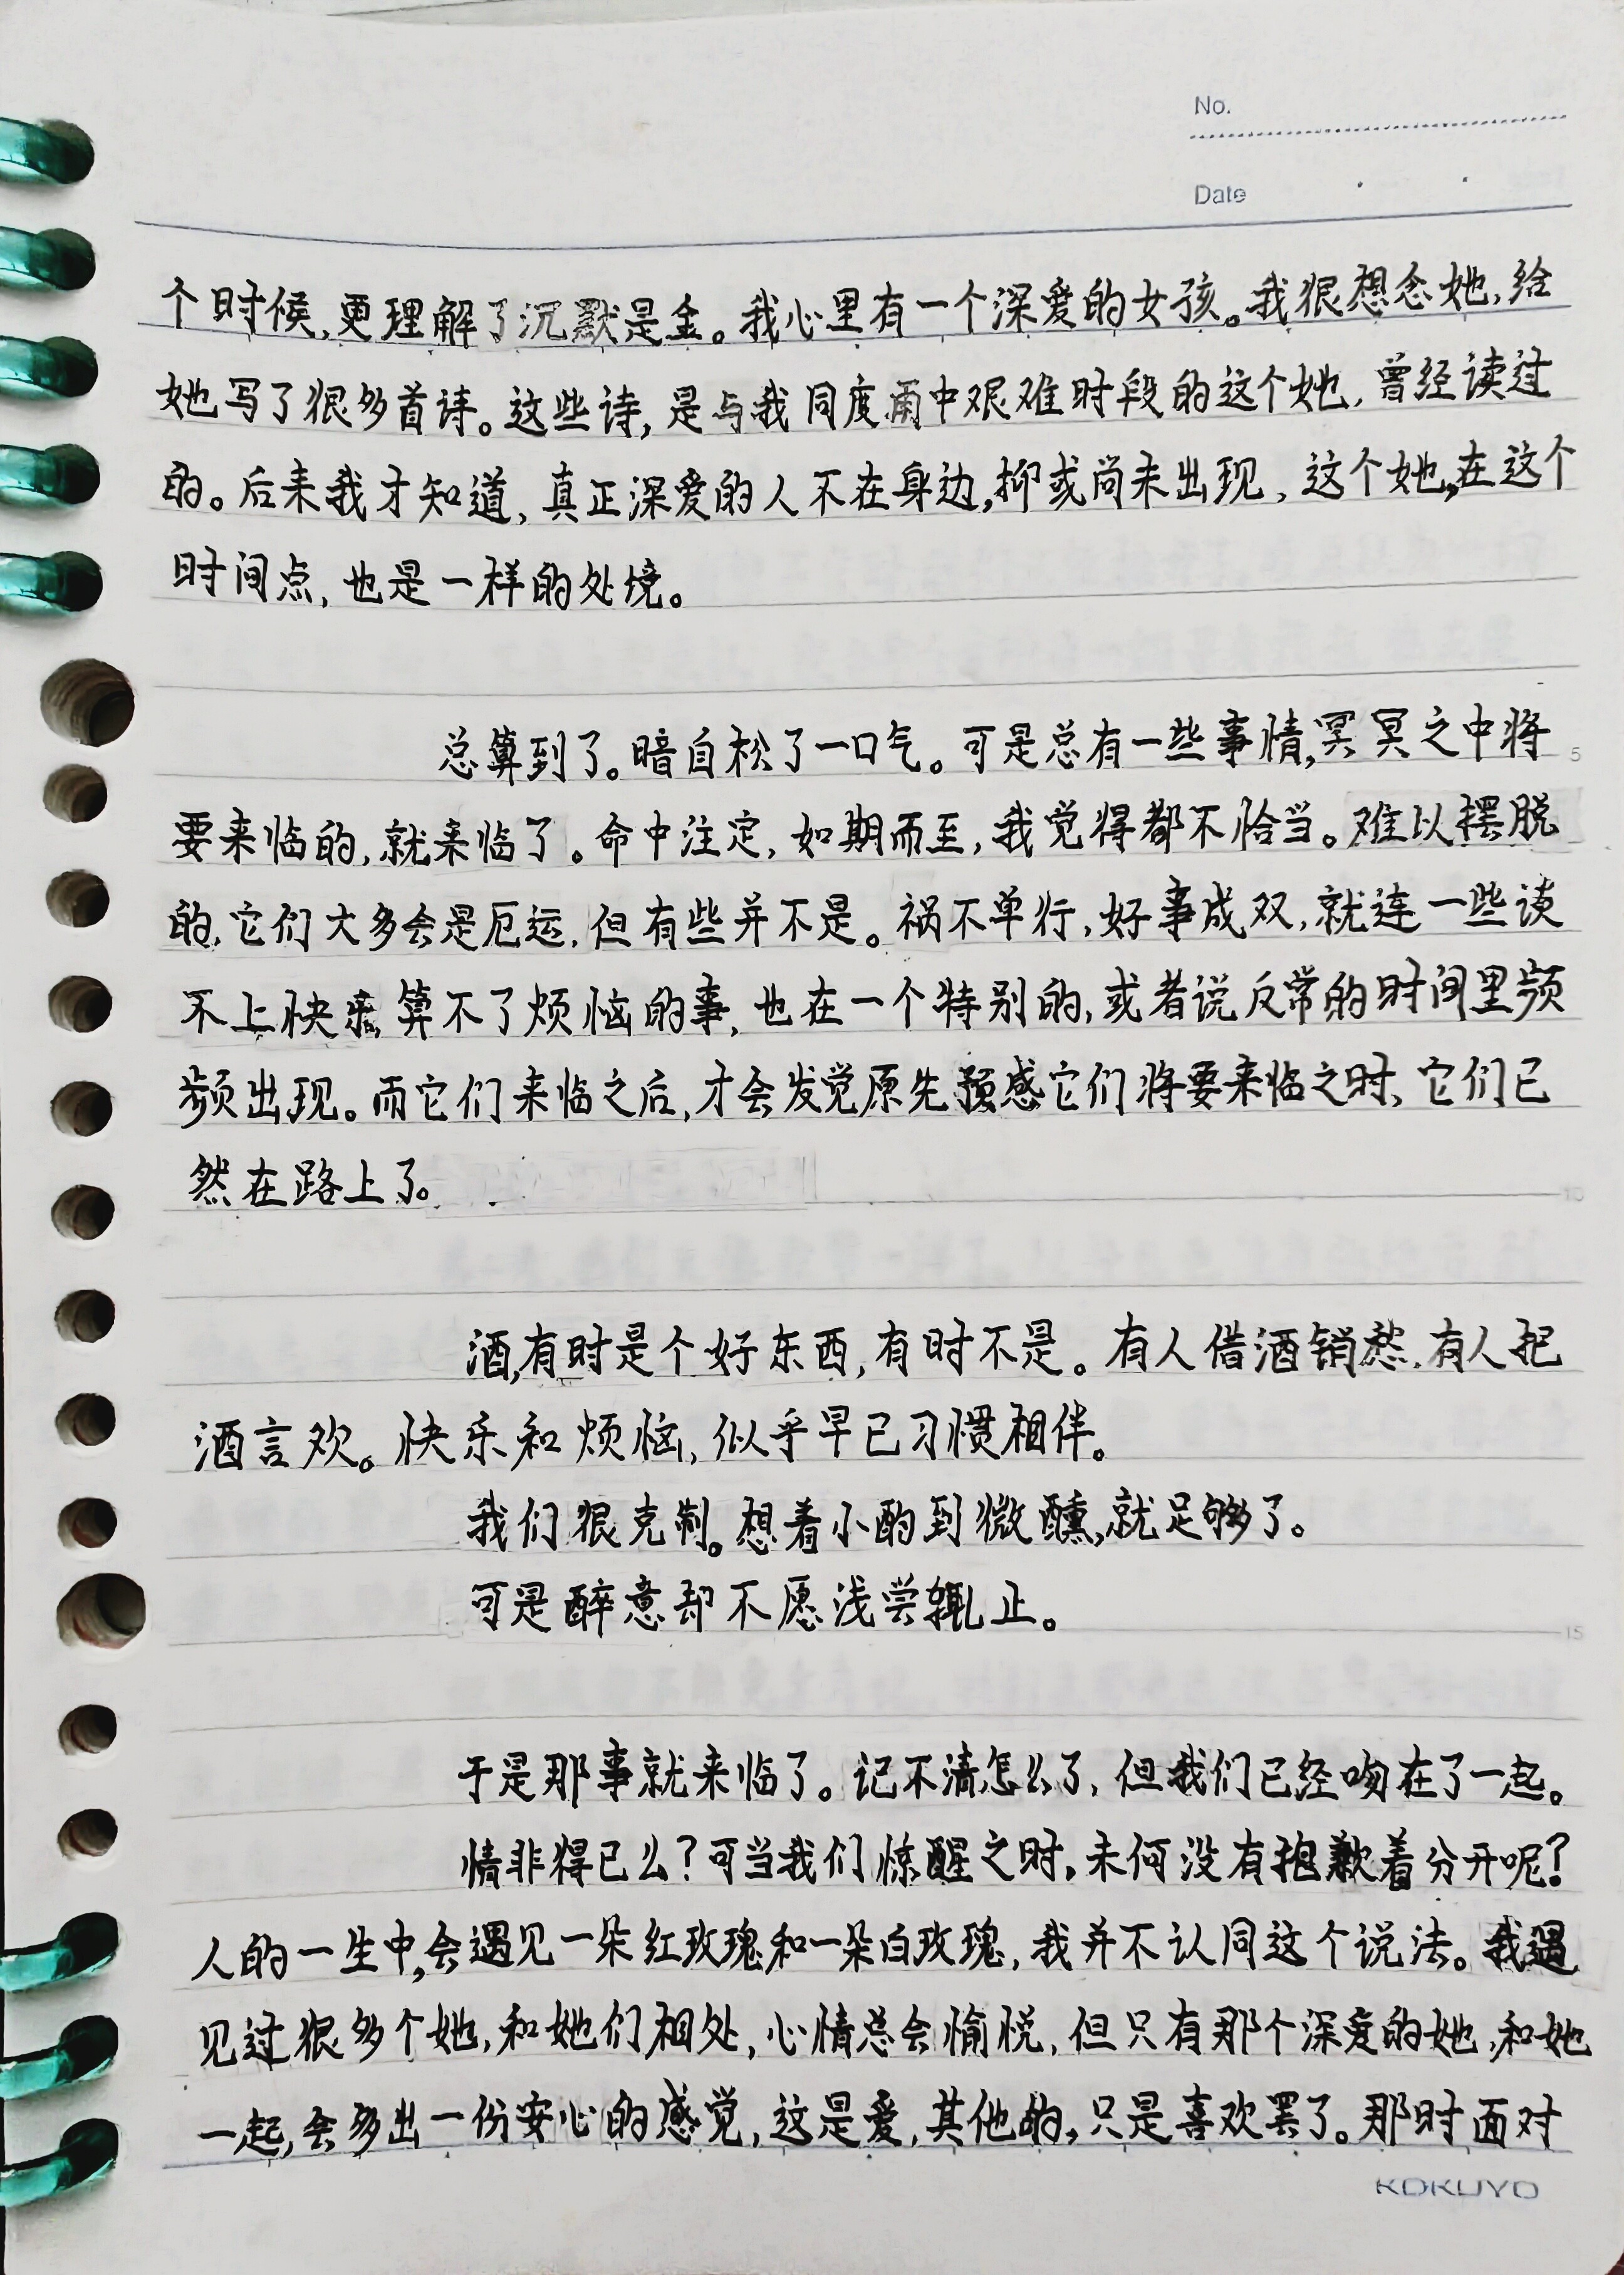 No.
Date
个时候,更理解了沉默是金。我心里有一个深爱的女孩。我很想念她,给
她写了很多首诗。这些诗,是与我同度雨中艰难时段的这个她,曾经读过
的。后来我才知道,真正深爱的人不在身边,抑或尚未出现,这个她,在这个
时间点,也是一样的处境。
总算到了。暗自松了一口气。可是总有一些事情,冥冥之中将
5
要来临的,就来临了。命中注定,如期而至,我觉得都不恰当。难以摆脱
的,它们大多会是厄运,但有些并不是。祸不单行,好事成双,就连一些谈
不上快乐,算不了烦恼的事,也在一个特别的,或者说反常的时间里频
频出现。而它们来临之后,才会发觉原先预感它们将要来临之时,它们已
然在路上了。
10
酒,有时是个好东西,有时不是。有人借酒销愁,有人把
酒言欢。快乐和烦恼,似乎早已习惯相伴。
我们很克制。想着小酌到微醺,就足够了。
可是醉意却不愿浅尝辄止。
15
于是那事就来临了。记不清怎么了,但我们已经吻在了一起。
情非得已么?可当我们惊醒之时,未何没有抱歉着分开呢?
人的一生中,会遇见一朵红玫瑰和一朵白玫瑰,我并不认同这个说法。我遇
见过很多个她,和她们相处,心情总会愉悦,但只有那个深爱的她,和她
一起,会多出一份安心的感觉,这是爱,其他的,只是喜欢罢了。那时面对
KOKUYO